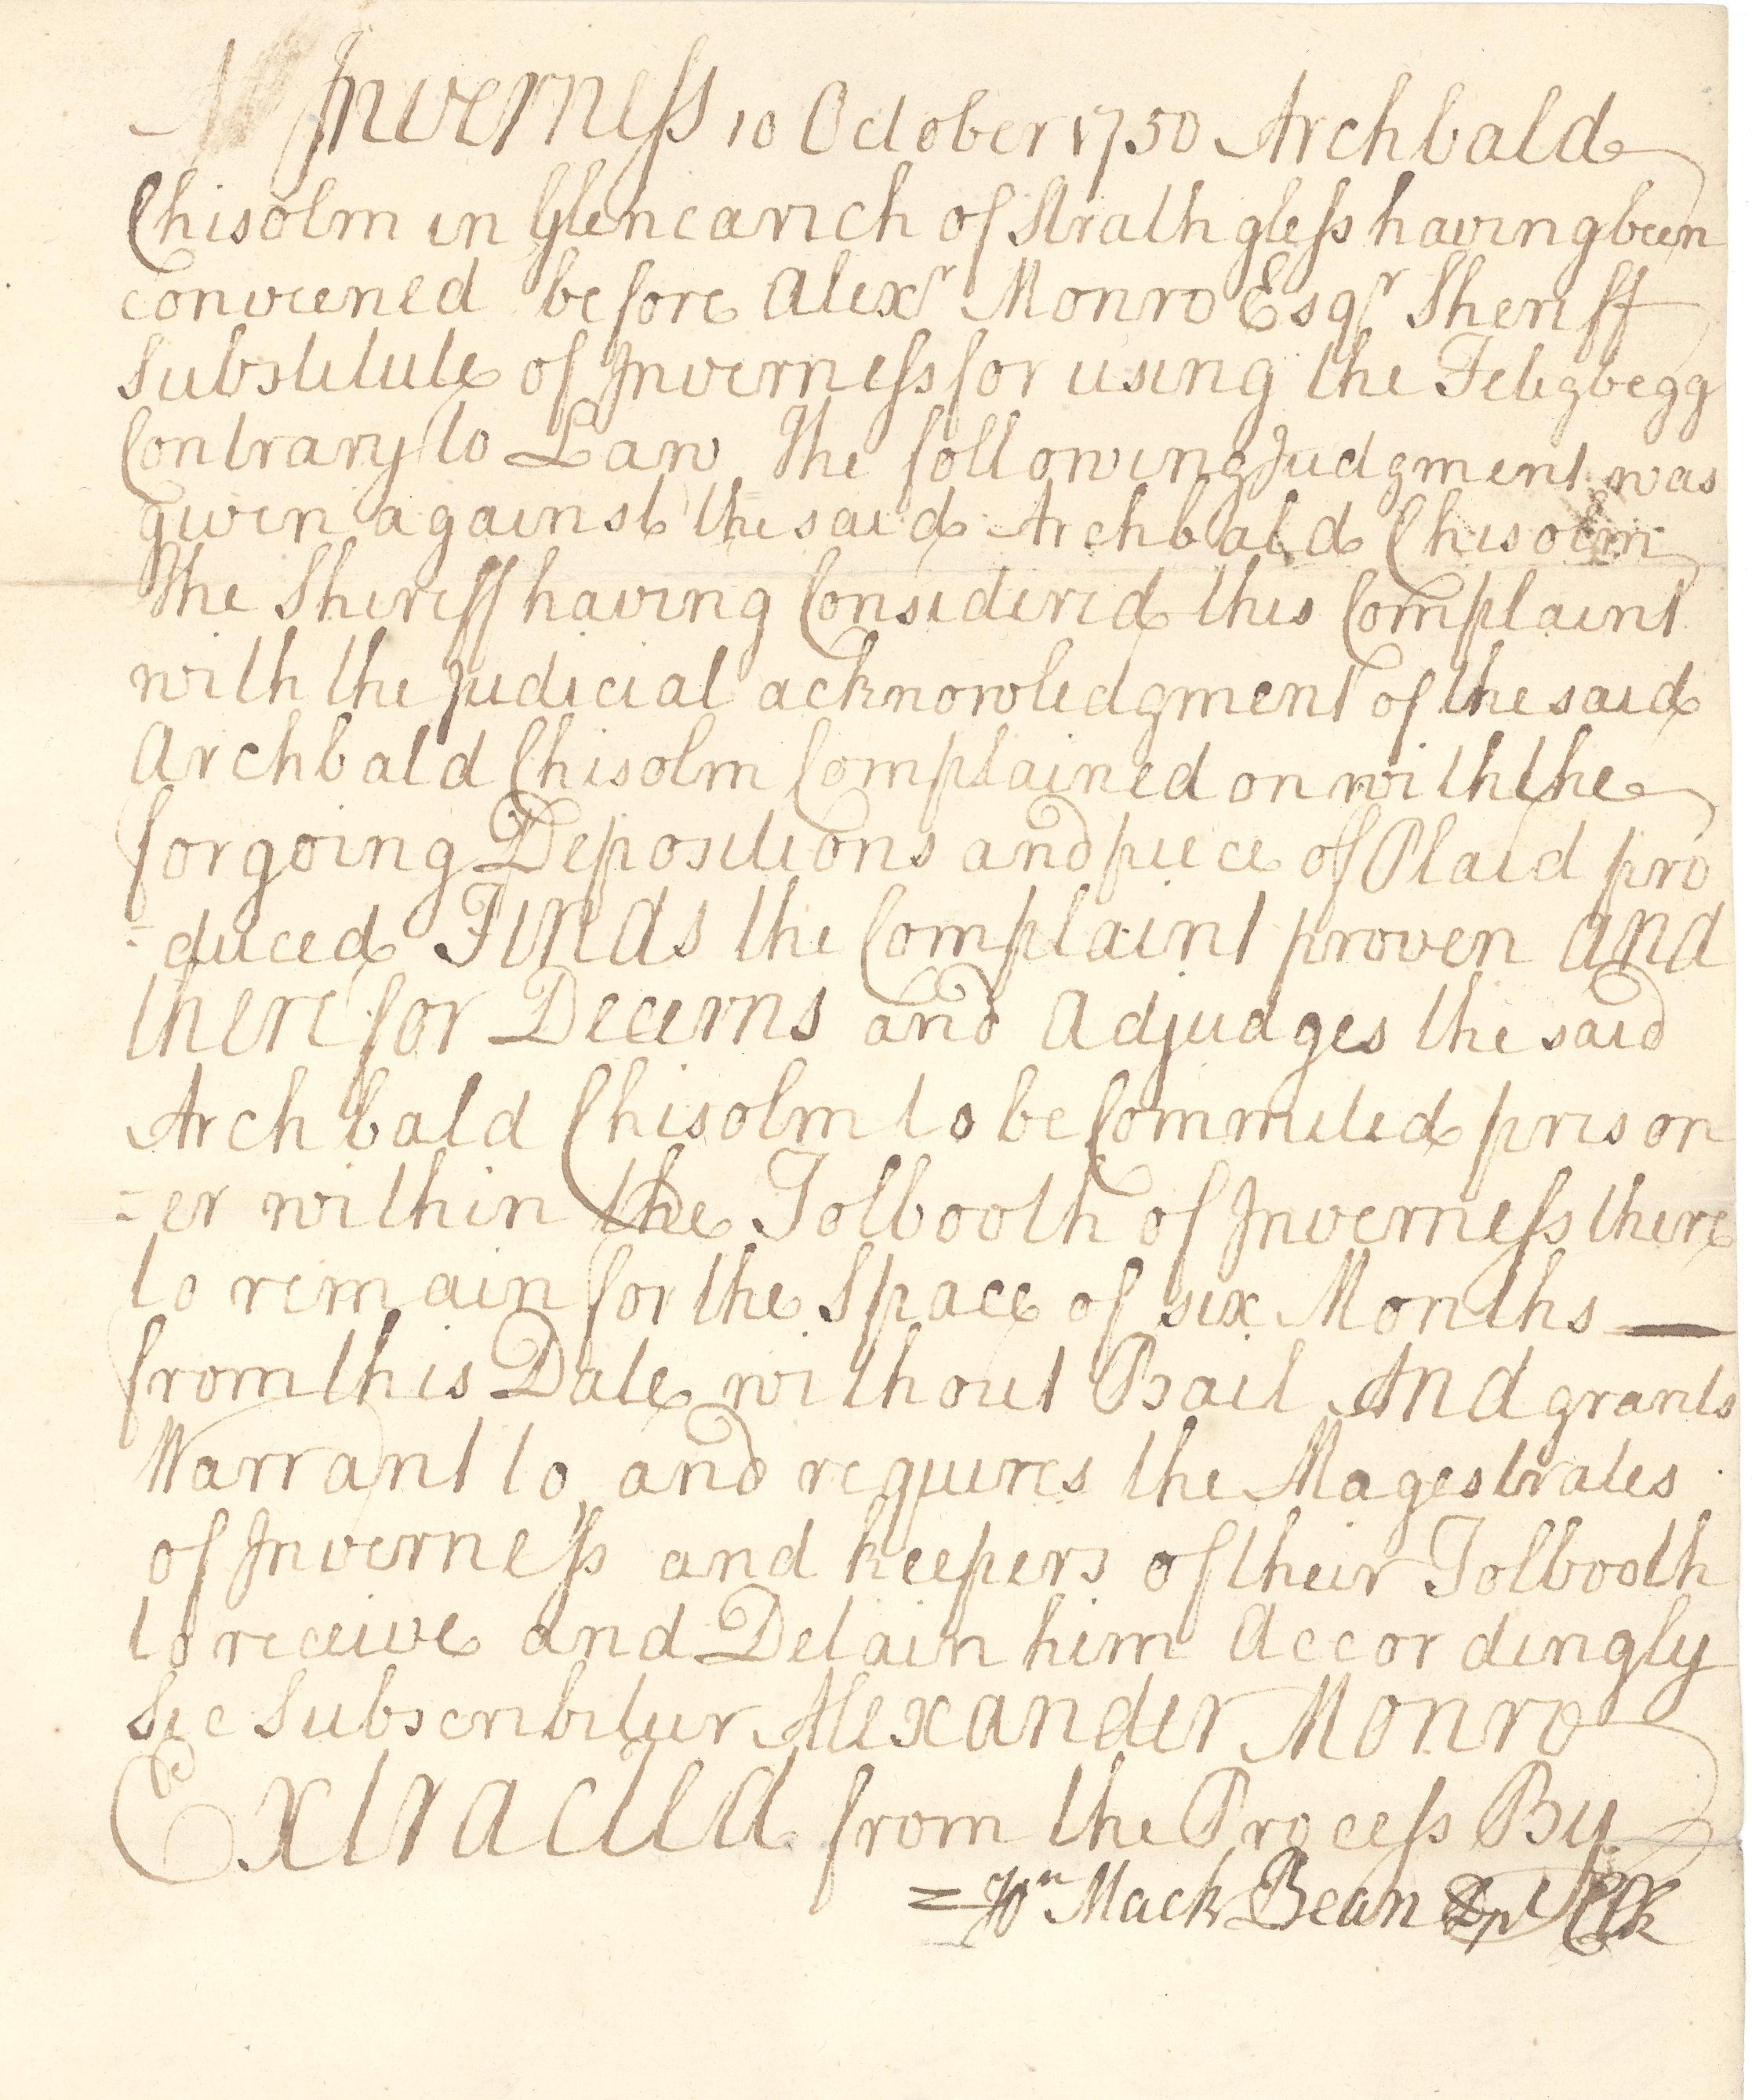 At Inverness 10 October 1750 Archbald
Chisolm in Glencarich of Strathgless having been
conveened before Alexr Monro Esqr Sheriff
Substitute of Inverness for using the Feligbegg
Contrary to Law The following Judgment was
given against the said Archbald Chisolm
The Sheriff having Considered this Complaint
with the Judicial acknowledgment of the said
Archbald Chisolm Complained on with the
forgoing Depositions and piece of Plaid pro
=duced Finds the Complaint proven And
therefor Decerns and Adjudges the said
Archbald Chisolm to be Commited prison
=er within the Tolbooth of Inverness there
to remain for the Space of six Months —
from this Date without Bail And grants
Warrant to, and requires the Magestrates
of Inverness and keepers of their Tolbooth
to receive and Detain him Accordingly
Sic Subscribitur Alexander Monro
Extracted from the Process By
= Wm Mack Bean Dpt Clk